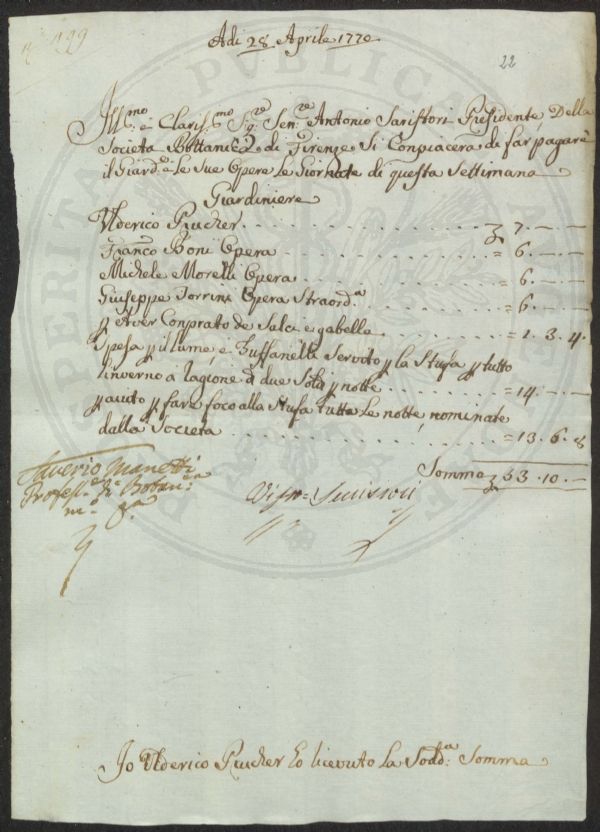 N. 499
Adi 28 Aprile 1770
22
Ill.mo e Clariss.mo Sig.re Sen.re Antonio Saristori Presidente Della
Societa Bottanica di Firenze Si Conpiacera di far pagare
il Giard.e e Le Sue Opere Le Giornate di questa Settimana
Giardiniere
Ulderico Prucker 7. — —
Franco Boni Opera = 6. — —
Michele Morelli Opera = 6. — —
Giuseppe Torrini Opera Straord.a = 6. — —
p Aver Conprato de Salci e gabella = 1. 3. 4.
Spesa p il lume e Zuffanelli Servito p la Stufa p tutto
linverno a ragione d due Soldi p notte = 14. — —
p aiuto p fare foco alla Stufa tutte Le notte nominate
dalla Societa = 13. 6. 8
Somma 53. 10. —
Saverio Manetti
Profess.e Botan.
Jo Ulderico Prucker Eo ricevuto La Sodd.a Somma
PUBLICA